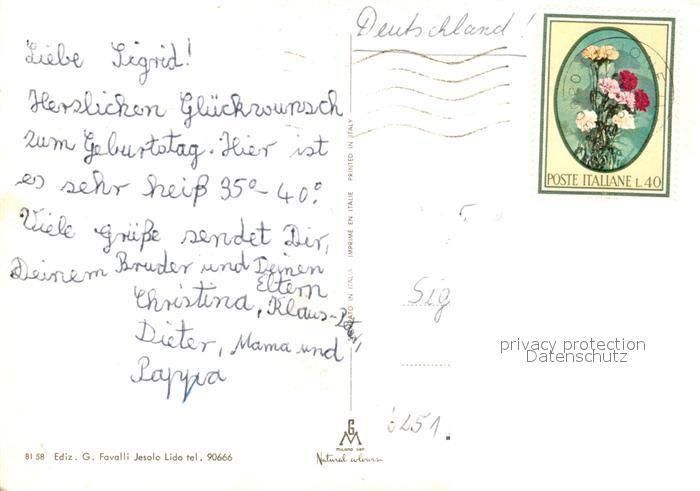 Deutschland!
Liebe Sigrid!
Herzlichen Glückwunsch
zum Geburtstag. Hier ist
es sehr heiß 35°- 40°.
Viele Grüße sendet Dir,
Deinem Bruder und Deinen
Eltern
Christina, Klaus-Peter,
Dieter, Mama und
Pappa
POSTE ITALIANE L.40
PRINTED IN ITALY
IMPRIMÉ EN ITALIE
IN ITALIA
Sig
privacy protection
Datenschutz
6251
BI 58 Ediz. G. Favalli Jesolo Lido tel. 90666
GM
MILANO
Natural colours